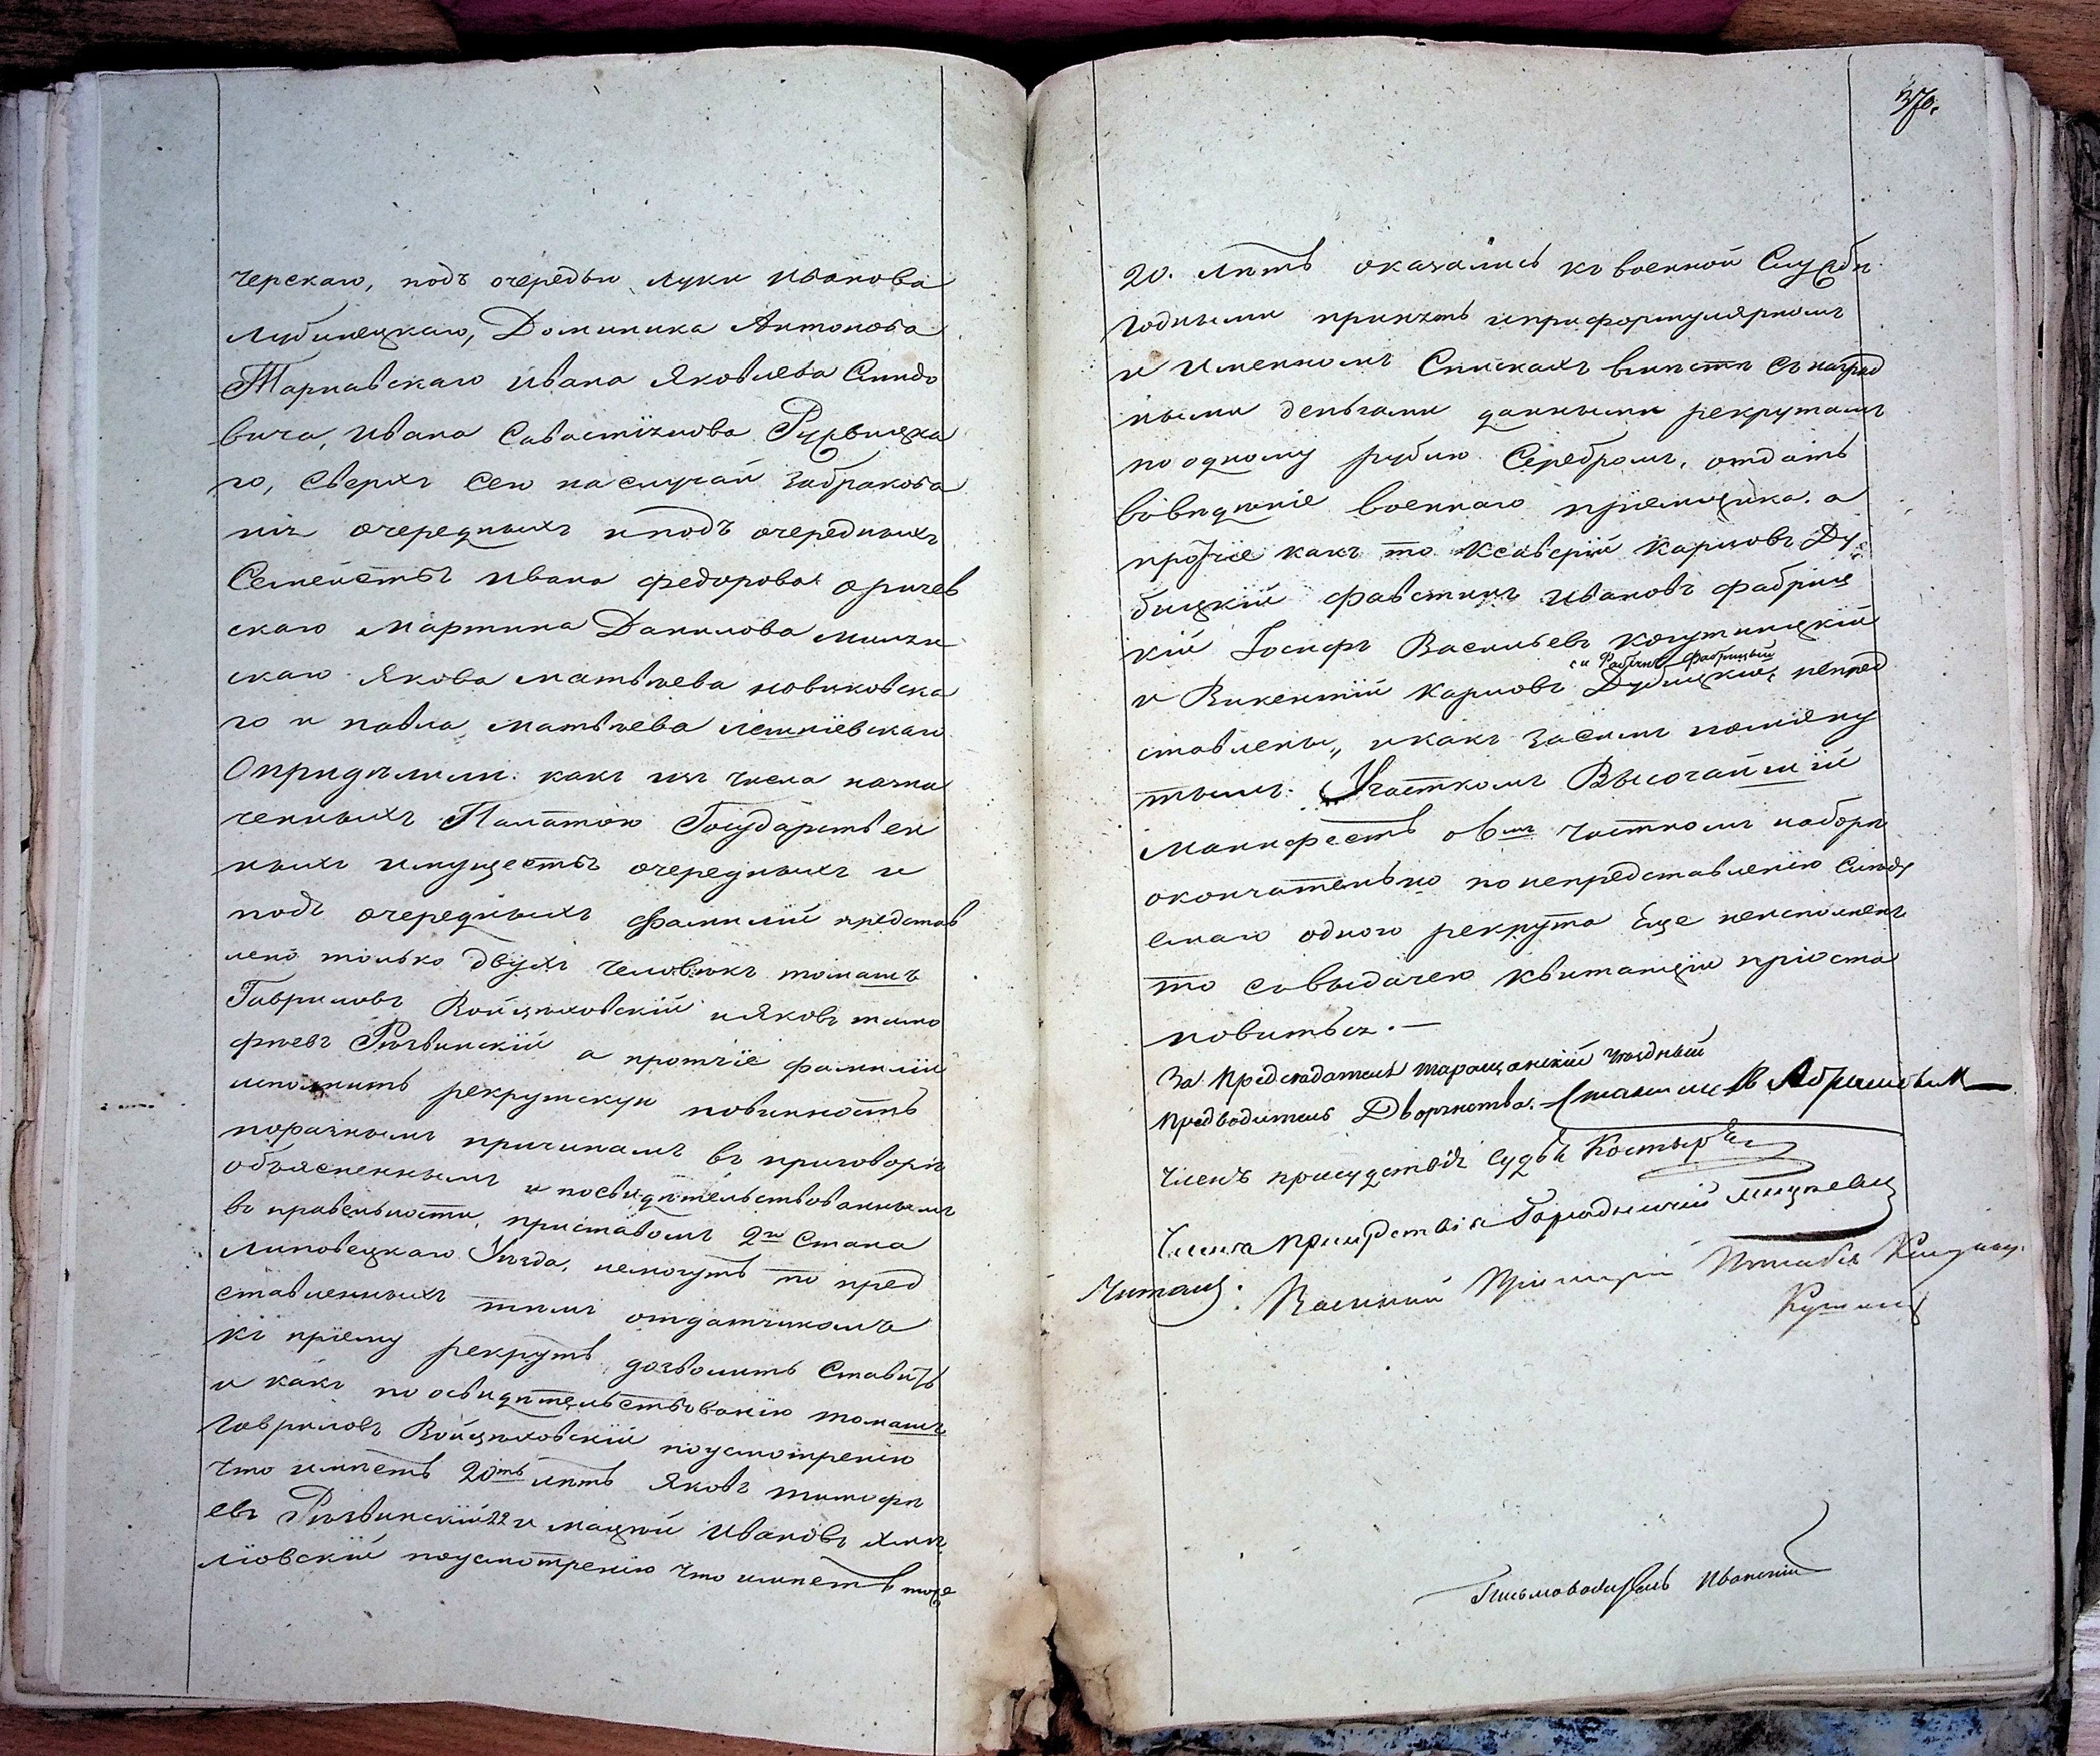 черскаго, подъ очередью Луки Иванова
Любинецкаго, Доминика Антонова
Тарнавскаго Ивана Яковлева Синдо
вича, Ивана Савастіянова
го, Сверхъ Сего на случай забракова
нія очередныхъ и подъ очередныхъ
Семействъ Ивана Федорова
скаго Мартина Данилова
скаго Якова Матвѣева Новиковска
го и Павла Матвѣева
Опридѣлили: какъ изъ числа назна
ченныхъ Палатою Государствен
ныхъ имуществъ очередныхъ и
подъ очередныхъ фамилій представ
лено только двухъ человѣкъ Томашъ
Гавриловъ Войцѣховскій и Яковъ тимо
фѣевъ Рѣзвинскій а протчіе фамиліи
исполнить рекрутскую повинность
поразнымъ причинамъ въ приговорѣ
объясненнымъ и посвидѣтельствованнымъ
въ правельности, приставомъ 2го Стана
Липовецкаго Уѣзда, немогутъ то пред
ставленныхъ тѣмъ отдатчикомъ
къ пріему рекрутъ дозволить Ставить
и какъ по освидѣтельствованію Томашъ
Гавриловъ Войцѣховскій поусмотренію
что имѣетъ 20ть лѣтъ Яковъ тимофѣ
евъ Рѣзвинскій 22 и Мацѣй Ивановъ
ліовскій поусмотренію что имѣетъ тоже
370.
20. лѣтъ оказались къ военной Службѣ
годными принять и при формулярномъ
и Именномъ Спискахъ вмѣстѣ съ наград
ными деньгами данными рекрутамъ
по одному рублю Серебромъ, отдать
въ вѣдѣніе военнаго пріемщика. а
протчіе какъ то Ксаверій Карповъ Ду
бицкій Фавстинъ Ивановъ Фабриц
кій Іосифъ Васильевъ Когутницкій
Фабрицкій
и Викентій Карповъ Дубицкій, непред
ставлены, и какъ Засимъ помяну
тымъ Участкомъ Высочайшій
Манифестъ о 6мъ частномъ наборѣ
окончательно по непредставленію Слѣду
емаго одного рекрута Еще неисполненъ
то съ выдачею квитанціи пріоста
новиться.—
За Предсѣдателя Таращанскій Уѣздный
Предводитель Дворянства.
Членъ присудствія Судья
Членъ присудствія Городничій
Читалъ: Военный Пріемщикъ Штабсъ
Письмоводитель Иванскій